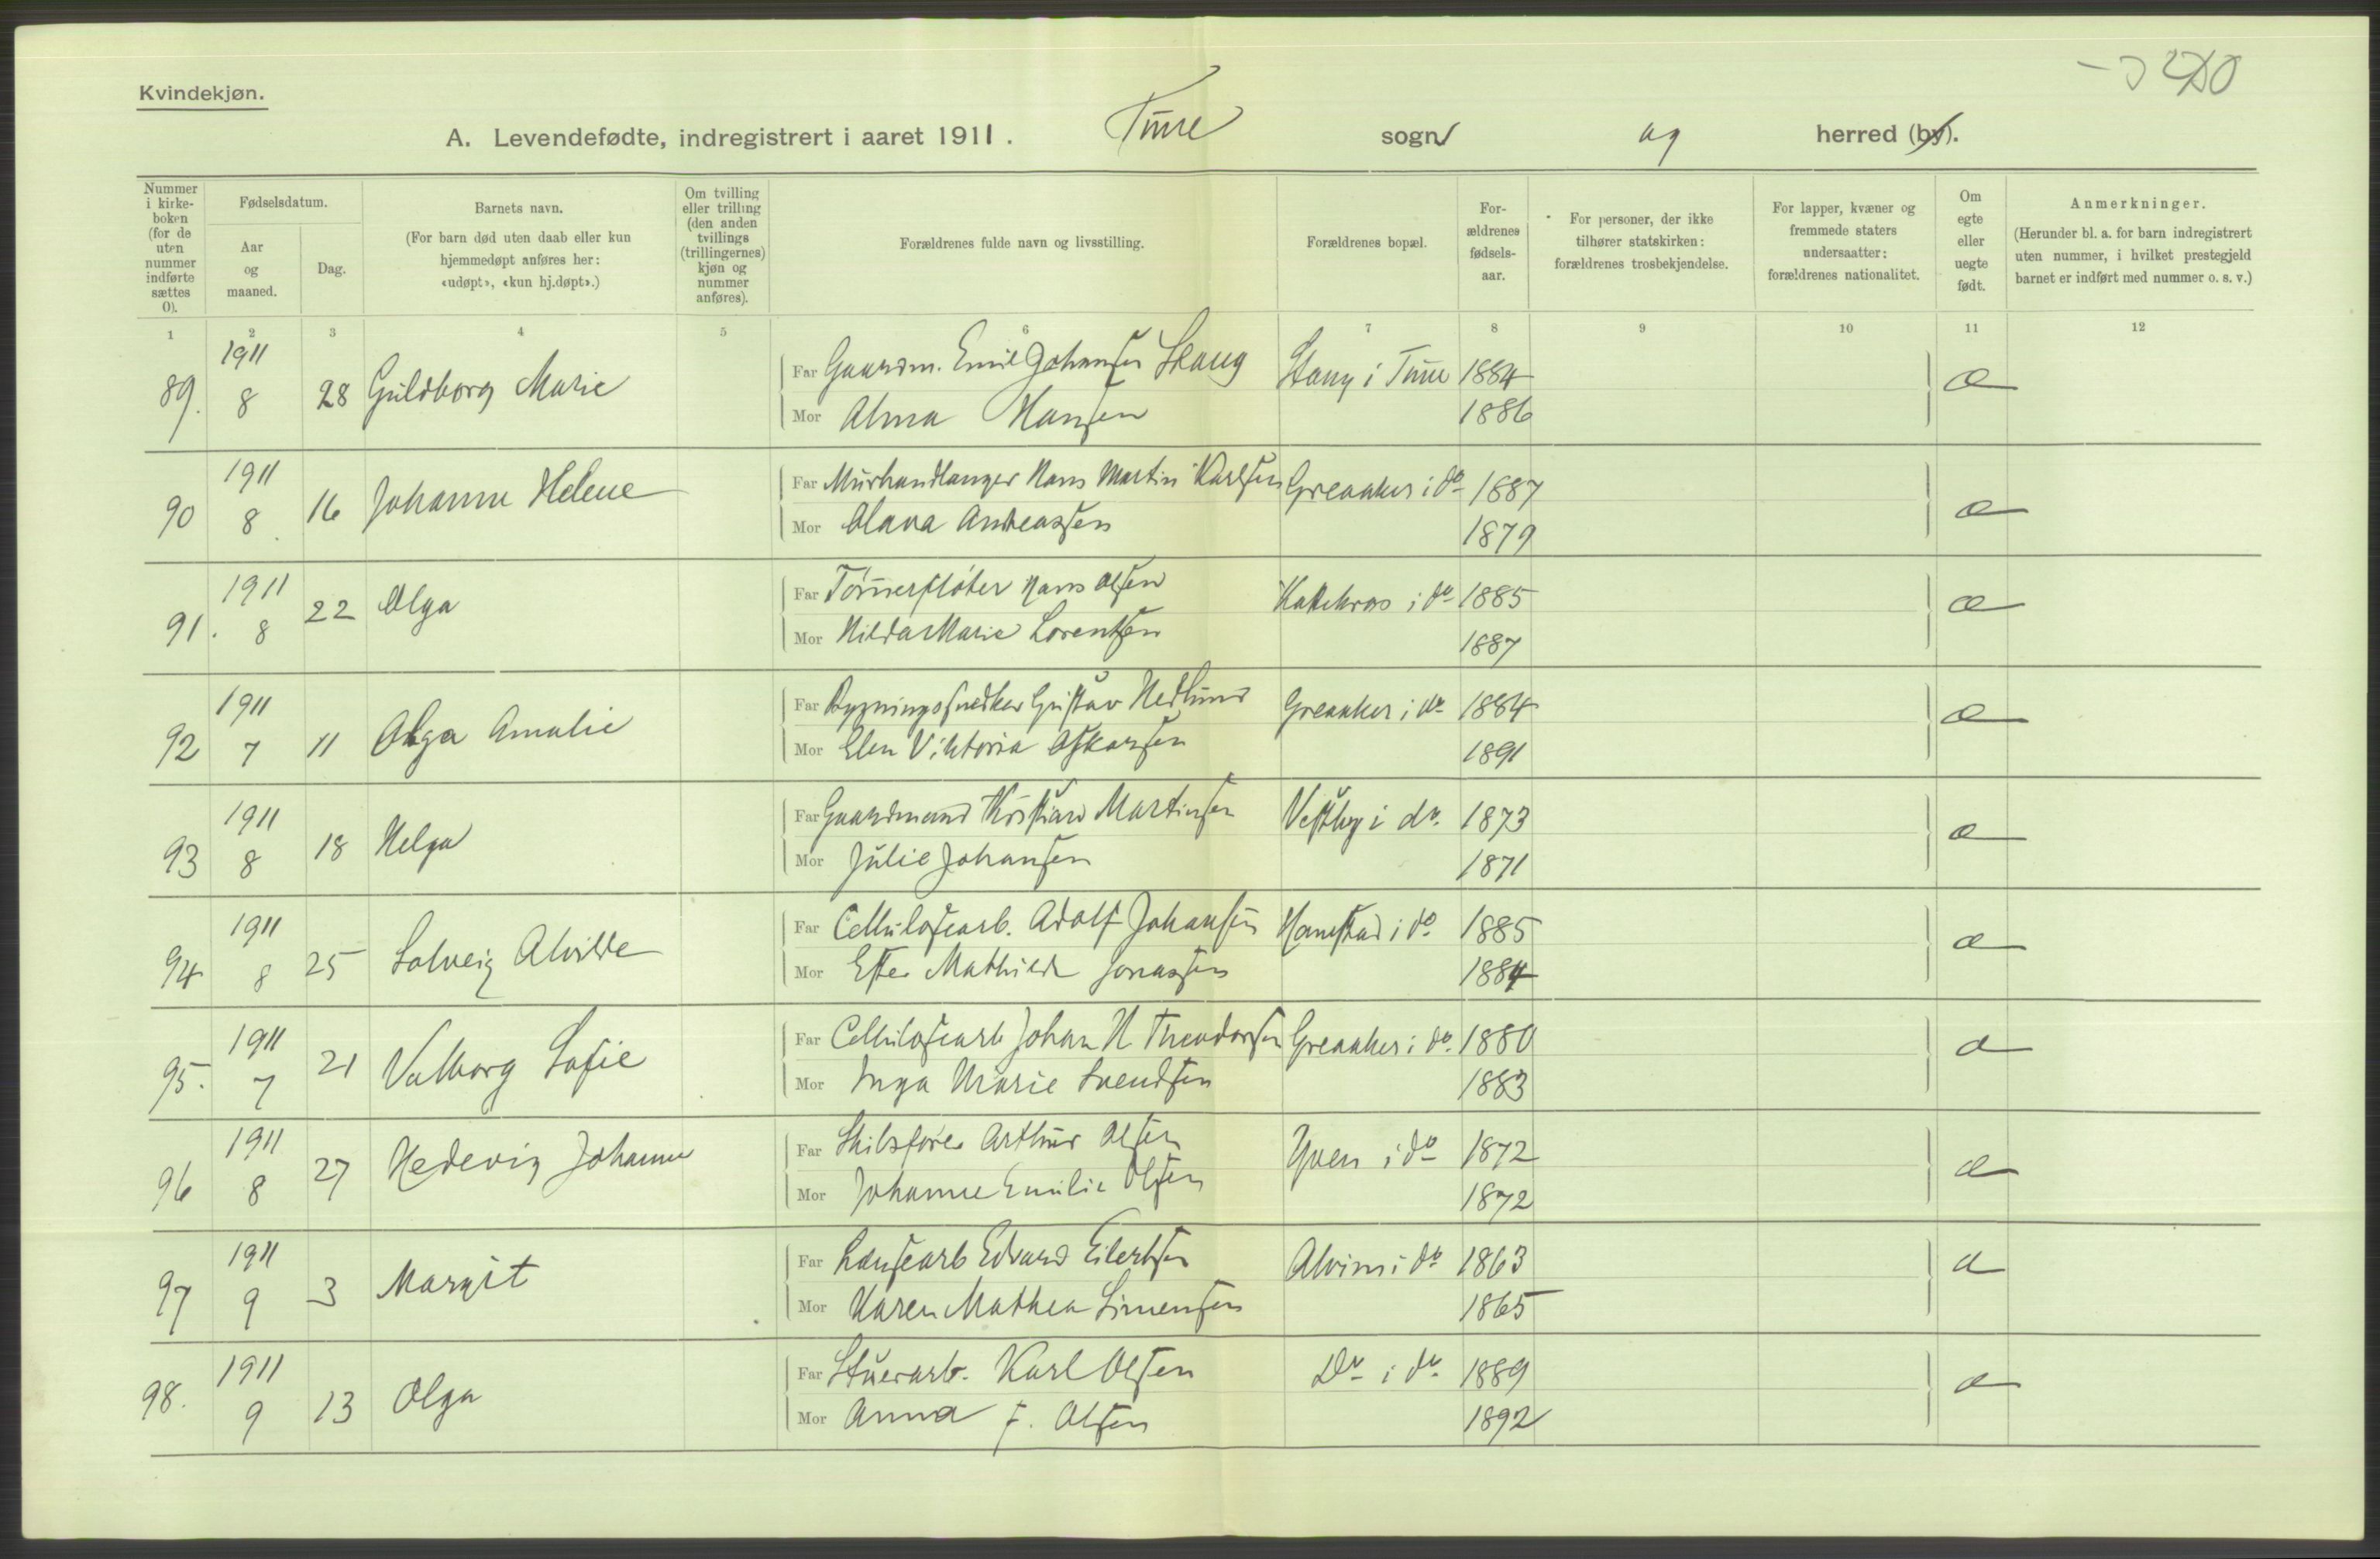 Kvindekjøn.
A. Levendefødte, indregistrert i aaret 1911. Tune sogn og herred (by).
Nummer i kirkeboken (for de uten nummer indførte sættes 0).
Fødselsdatum.
Aar og maaned.
Dag.
Barnets navn.
(For barn død uten daab eller kun hjemmedøpt anføres her: «udøpt», «kun hj.døpt».)
Om tvilling eller trilling (den anden tvillings (trillingernes) kjøn og nummer anføres).
Forældrenes fulde navn og livsstilling.
Forældrenes bopæl.
Forældrenes fødselsaar.
For personer, der ikke tilhører statskirken: forældrenes trosbekjendelse.
For lapper, kvæner og fremmede staters undersaatter: forældrenes nationalitet.
Om egte eller uegte født.
Anmerkninger.
(Herunder bl. a. for barn indregistrert uten nummer, i hvilket prestegjeld barnet er indført med nummer o. s. v.)
1 2 3 4 5 6 7 8 9 10 11 12
89. 1911 8 28 Guldborg Marie Far Gaardm. Emil Johansen Skaug i Tune 1884 æ
Mor Alma Hansen 1886
90 1911 8 16 Johanne Helene Far Murhandlanger Hans Martin Karlsen Greaaker i do 1887 æ
Mor Olava Andreassen 1879
91. 1911 8 22 Olga Far Tømmerfløter Hans Olsen i do 1885 æ
Mor Hilda Marie Lorentsen 1887
92 1911 7 11 Olga Amalie Far Bygningssnedker Gustav Hedlund Greaaker i do 1884 æ
Mor Elen Viktoria Oskarsen 1891
93 1911 8 18 Helga Far Gaardmand Kristian Martinsen Vestby i do. 1873 æ
Mor Julie Johansen 1871
94 1911 8 25 Solveig Alvilde Far Cellulosearb. Adolf Johansen Hanestad i do. 1885 æ
Mor Ester Mathilde Jonassen 1884
95. 1911 7 21 Valborg Sofie Far Cellulosearb Johan H Theodorsen Greaaker i do. 1880 æ
Mor Inga Marie Svendsen 1883
96 1911 8 27 Hedevig Johanne Far Skibsfører Arthur Olsen Yven i do 1872 æ
Mor Johanne Emilie Olsen 1872
97 1911 9 3 Margit Far Lænsearb Edvard Eilertsen Alvim i do 1863 æ
Mor Karen Mathea Simensen 1865
98. 1911 9 13 Olga Far Stuerarb. Karl Olsen Do i do. 1889 æ
Mor Anna F. Olsen 1892